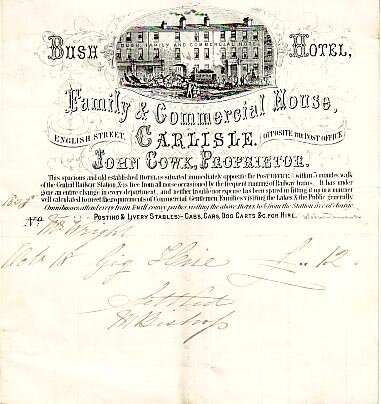 BUSH HOTEL,
BUSH FAMILY AND COMMERCIAL HOTEL
Family & Commercial House,
ENGLISH STREET, OPPOSITE THE POST OFFICE
CARLISLE.
JOHN COWX, PROPRIETOR.
This spacious and old established HOTEL is situated immediately opposite the POST OFFICE, & within 5 minutes walk
of the Central Railway Station, & is free from all noise occasioned by the frequent running of Railway trains. It has under
gone an entire change in every department, and neither trouble nor expense has been spared in fitting it up in a manner
well calculated to meet the requirements of Commercial Gentlemen, Families visiting the Lakes, & the Public generally.
Omnibusses attend every train to & will convey parties visiting the above HOTEL to & from the Station free of charge.
POSTING & LIVERY STABLES:- CABS, CARS, DOG CARTS &c. FOR HIRE.
No.
Mr Wright
Gig Hire 12
Settled